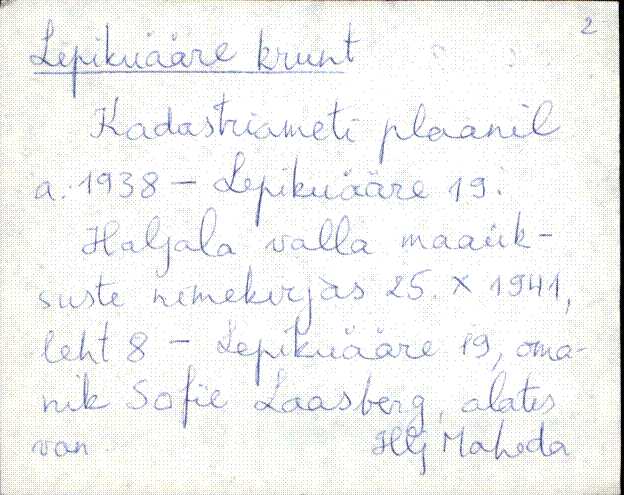 2
Lepikuääre krunt
Kadastriameti plaanil
a. 1938 – Lepikuääre 19.
Haljala valla maaük-
suste nimekirjas 25. X 1941,
leht 8 – Lepikuääre 19, oma-
nik Sofie Laasberg, alates
van HlJ Maheda